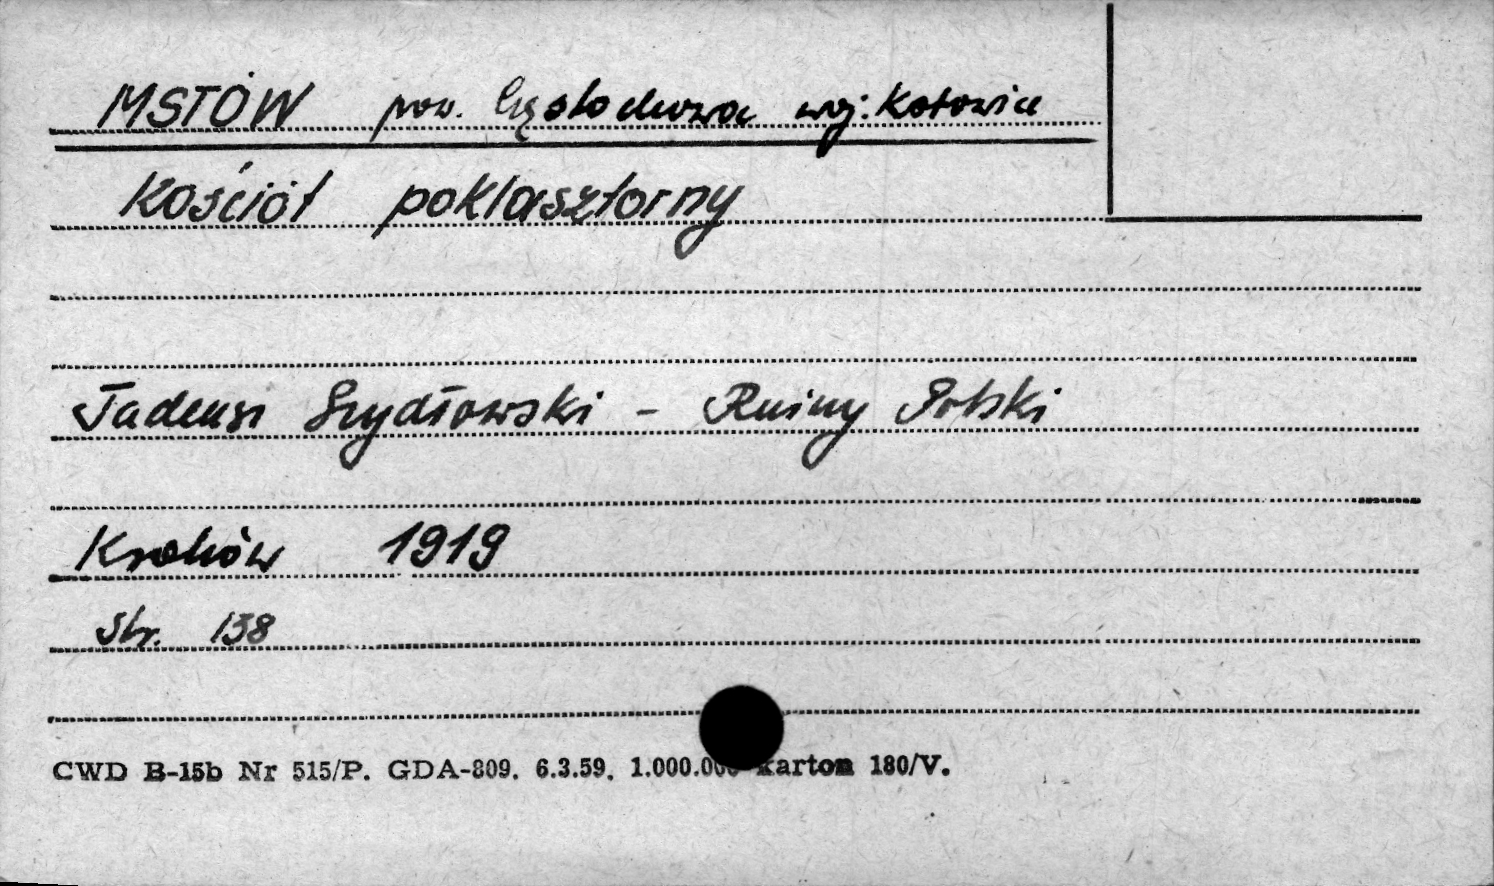 MSTÓW pow. Częstochowa woj. Katowice
Kościół poklasztorny
Tadeusz Szydłowski - Ruiny Polski
Kraków 1919
Str. 138
CWD B-15b Nr 515/P. GDA-809. 6.3.59. 1.000.000 karton 180/V.